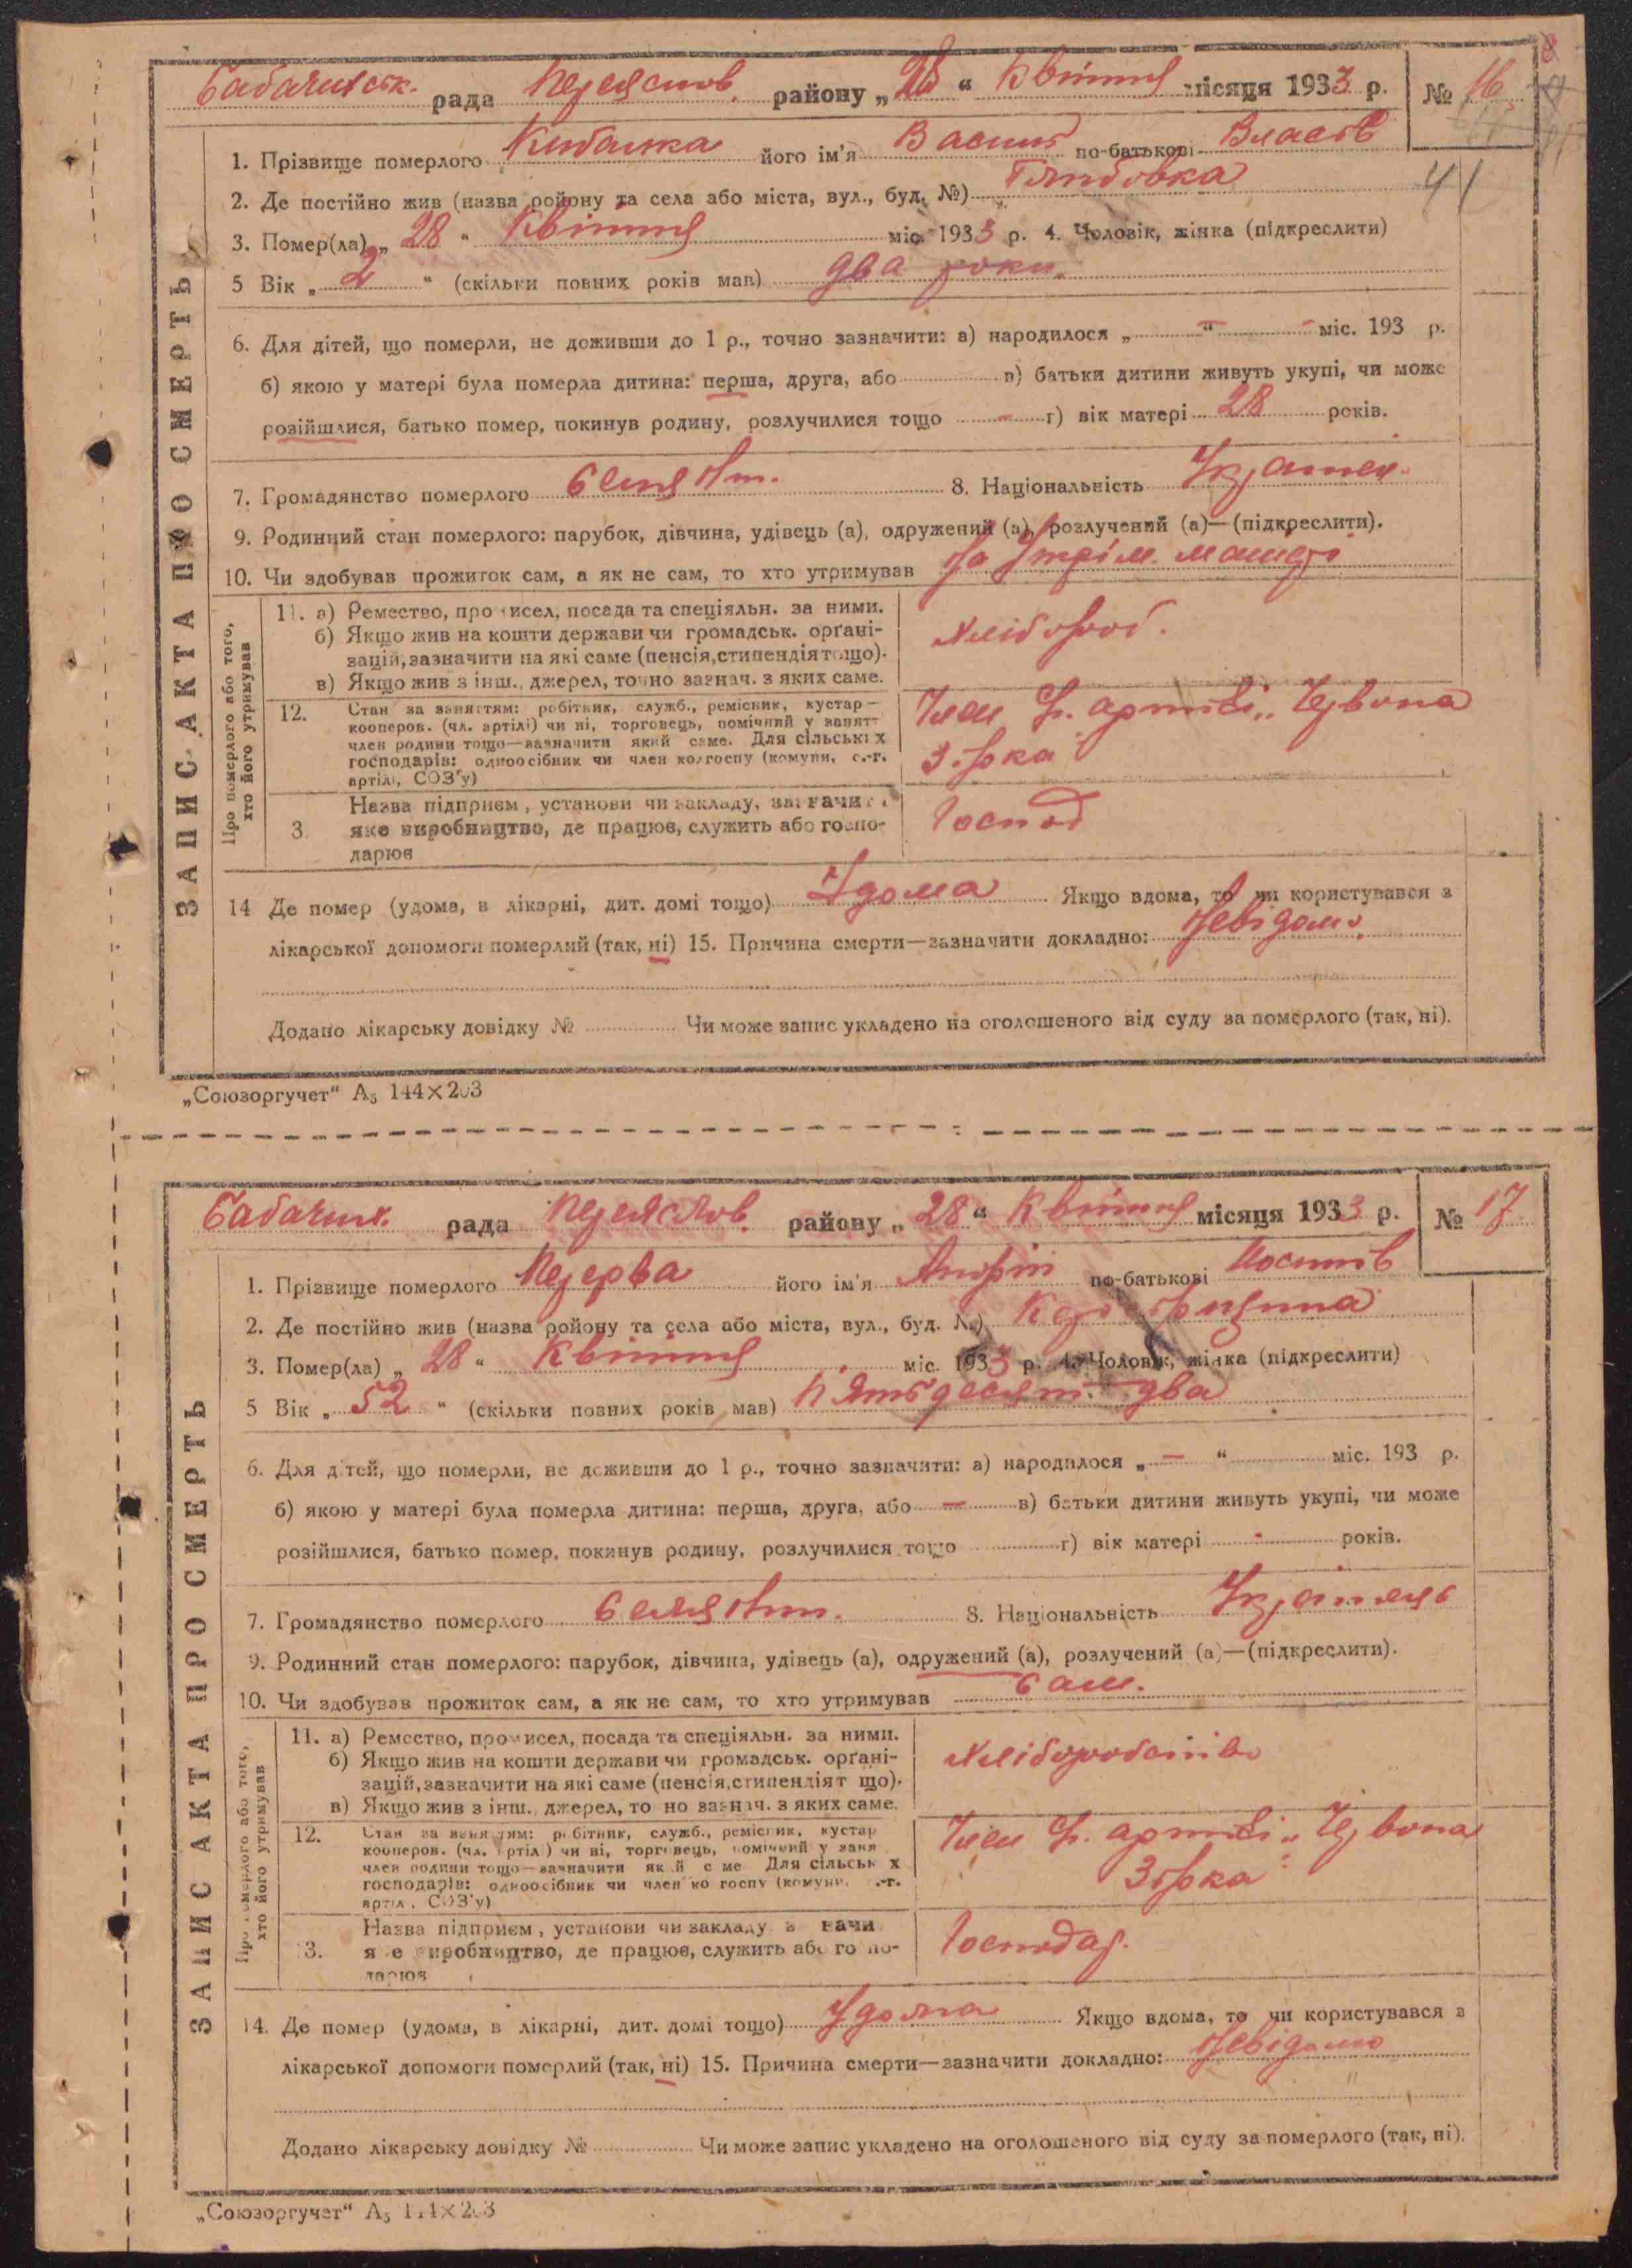 Бабачихськ. рада Переяслов. району „28“ Квітня місяця 1933 р. № 16
1. Прізвище померлого його ім'я Василь по-батькові Власів
41
2. Де постійно жив (назва ройону та села або міста, вул., буд. №)
3. Помер(ла) „28“ Квітня міс 1933 р. 4. Чоловік, жінка (підкреслити)
5 Вік „2“ (скільки повних років мав) два роки.
6. Для дітей, що померли, не доживши до 1 р., точно зазначити: а) народилося „ “ міс. 193 р.
б) якою у матері була померла дитина: перша, друга, або в) батьки дитини живуть укупі, чи може
розійшлися, батько помер, покинув родину, розлучилися тощо г) вік матері 28 років.
7. Громадянство померлого Селян 8. Національність Україн
9. Родинний стан померлого: парубок, дівчина, удівець (а), одружений (а), розлучений (а)—(підкреслити).
10. Чи здобував прожиток сам, а як не сам, то хто утримував На утрім. матері
ЗАПИСАКТА ПРО СМЕРТЬ
Про померлого або того, хто його утримував
11. а) Ремество, промисел, посада та спеціяльн. за ними.
б) Якщо жив на кошти держави чи громадськ. орґані-
зацій, зазначити на які саме (пенсія, стипендія тощо).
в) Якщо жив з інш., джерел, точно зазнач. з яких саме.
Хлібороб.
12. Стан за заняттям: робітник, служб., ремісник, кустар—
кооперов. (чл. артілі) чи ні, торговець, помічний у занятт
член родини тощо—зазначити який саме. Для сільських
господарів: одноосібник чи член колгоспу (комуни, с.-г.
артілі, СОЗ'у)
Член артілі „Червона
Зірка
3. Назва підприєм, установи чи закладу, зазначити
яке виробництво, де працює, служить або госпо-
дарює
Господ
14 Де помер (удома, в лікарні, дит. домі тощо) Удома Якщо вдома, то чи користувався з
лікарської допомоги померлий (так, ні) 15. Причина смерти—зазначити докладно: Невідомо
Додано лікарську довідку № Чи може запис укладено на оголошеного від суду за померлого (так, ні).
„Союзоргучет“ А5 144×203
Бабачих. рада Переяслов. району „28“ Квітня місяця 1933 р. № 17
1. Прізвище померлого Перерва його ім'я по-батькові
2. Де постійно жив (назва ройону та села або міста, вул., буд. №)
3. Помер(ла) „28“ Квітня міс. 1933 р. 4. Чоловік, жінка (підкреслити)
5 Вік „52“ (скільки повних років мав) Пятьдесят два
6. Для дітей, що померли, не доживши до 1 р., точно зазначити: а) народилося „—“ міс. 193 р.
б) якою у матері була померла дитина: перша, друга, або — в) батьки дитини живуть укупі, чи може
розійшлися, батько помер, покинув родину, розлучилися тощо г) вік матері - років.
7. Громадянство померлого Селян 8. Національність Українець
9. Родинний стан померлого: парубок, дівчина, удівець (а), одружений (а), розлучений (а)—(підкреслити).
10. Чи здобував прожиток сам, а як не сам, то хто утримував Сам.
ЗАПИСАКТА ПРО СМЕРТЬ
Про померлого або того, хто його утримував
11. а) Ремество, промисел, посада та спеціяльн. за ними.
б) Якщо жив на кошти держави чи громадськ. орґані-
зацій, зазначити на які саме (пенсія, стипендія т що).
в) Якщо жив з інш., джерел, то но зазнач. з яких саме.
12. Стан за заняттям: робітник, служб., ремісник, кустар
кооперов. (чл. артілі) чи ні, торговець, помічний у заня
член родини тощо—зазначити який саме Для сільськ х
господарів: одноосібник чи член ко госпу (комуни, с.-г.
артіл, СОЗ'у)
Член артілі „Червона
Зірка
3. Назва підприєм, установи чи закладу зазначи
яке виробництво, де працює, служить або го по-
дарює
Господар.
14. Де помер (удома, в лікарні, дит. домі тощо) Удома Якщо вдома, то чи користувався з
лікарської допомоги померлий (так, ні) 15. Причина смерти—зазначити докладно: Невідомо
Додано лікарську довідку № Чи може запис укладено на оголошеного від суду за померлого (так, ні).
„Союзоргучет“ А5 144×203